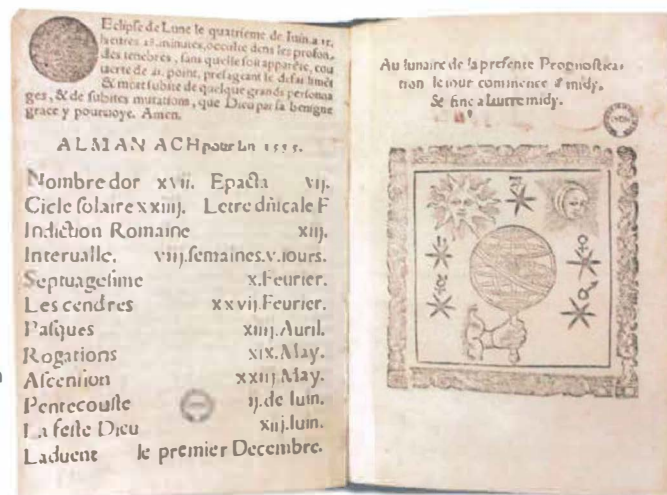 Eclipſe de Lune le quatrieme de Iuin, a 15.
heures 18. minutes, occulte dens les profon-
des tenebres, ſans quelle ſoit apparēte, cou
uerte de 21. point, preſageant le
& mort ſubite de quelque grands perſonna
ges, & de ſubites mutations, que Dieu par ſa benigne
grace y pouruoye. Amen.
ALMANACH pour Lan 1555.
Nombre dor xvii. Epacta vij.
Cicle ſolaire xxiiij. Letre dñicale F
Indiction Romaine xiij.
Interualle. viij. ſemaines. v. iours.
Septuageſime x. Feurier.
Les cendres xxvij. Feurier.
Paſques xiiij. Auril.
Rogations xix. May.
Aſcention xxiij. May.
Pentecouſte ij. de Iuin.
La feſte Dieu xiij. Iuin.
Laduent le premier Decembre.
Au lunaire de la preſente Prognoſtica-
tion le iour commence a midy,
& fine a lautre midy.
LYON